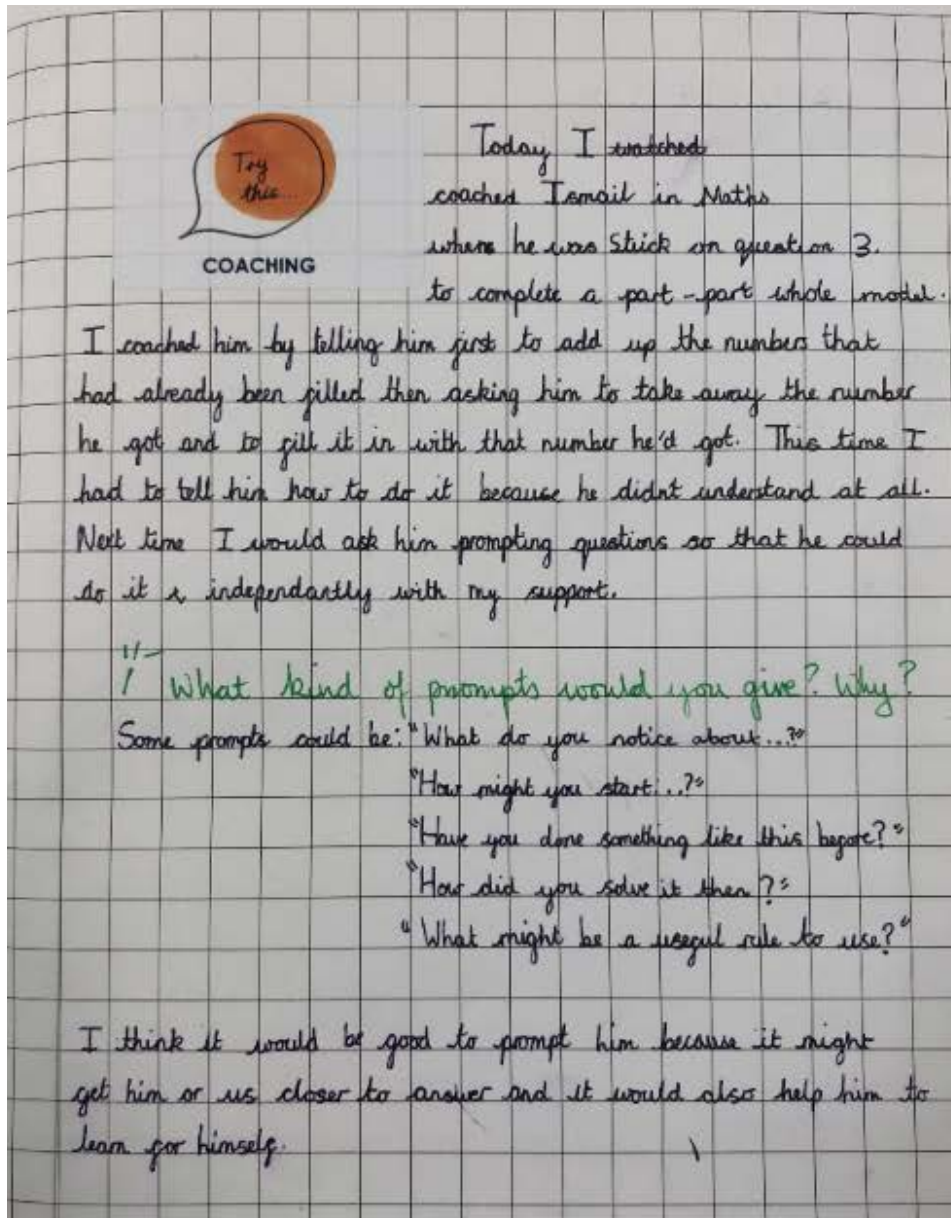 Try
this...
COACHING
Today I watched
coached Ismail in Maths
where he was Stick on question 3.
to complete a part-part whole model.
I coached him by telling him first to add up the numbers that
had already been filled then asking him to take away the number
he got and to fill it in with that number he'd got. This time I
had to tell him how to do it because he didnt understand at all.
Next time I would ask him prompting questions so that he could
do it independantly with my support.
What kind of prompts would you give? Why?
Some prompts could be: "What do you notice about...?"
"How might you start...?"
"Have you done something like this before?"
"How did you solve it then?"
"What might be a useful rule to use?"
I think it would be good to prompt him because it might
get him or us closer to answer and it would also help him to
learn for himself.